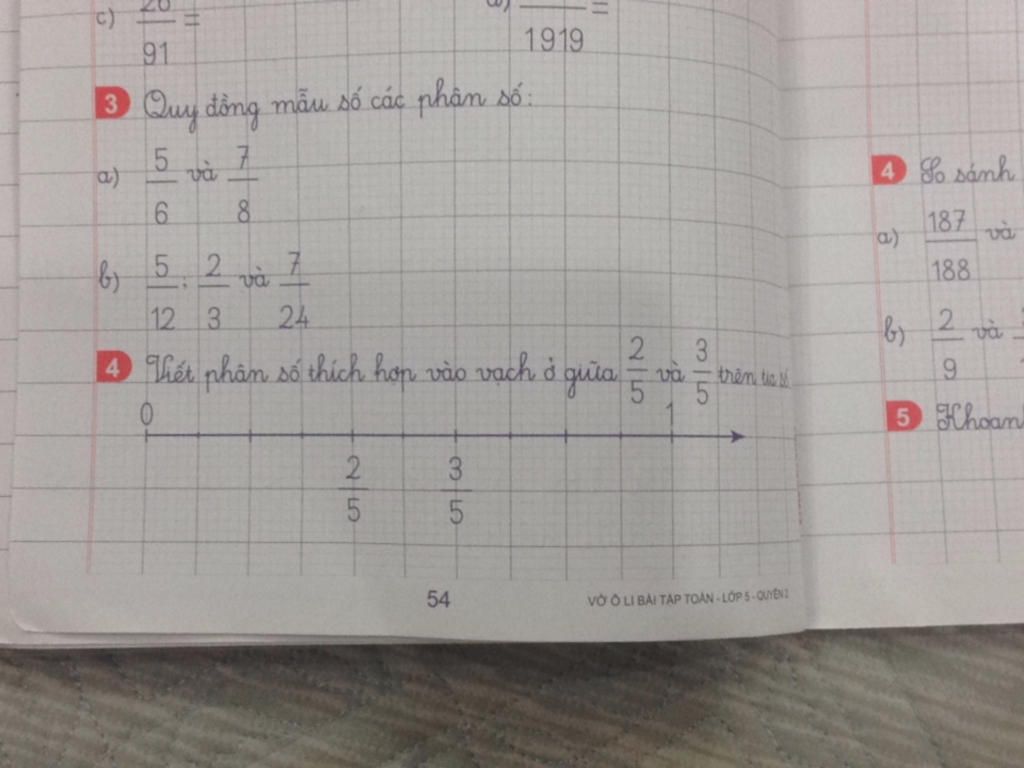 c) 20/91 =
1919 =
3 Quy đồng mẫu số các phân số:
a) 5/6 và 7/8
b) 5/12; 2/3 và 7/24
4 Viết phân số thích hợp vào vạch ở giữa 2/5 và 3/5 trên tia số
0 1
2/5 3/5
54
VỞ Ô LI BÀI TẬP TOÁN - LỚP 5 - QUYỂN 2
4 So sánh
a) 187/188 và
b) 2/9 và
5 Khoan